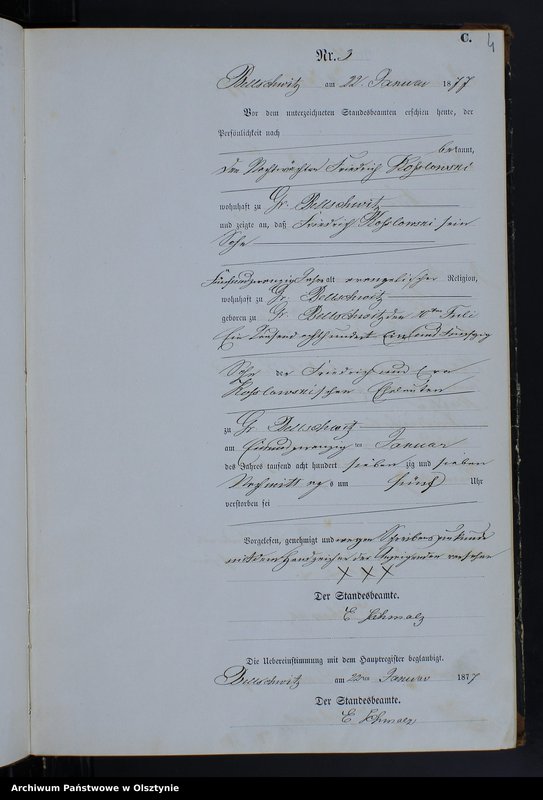 C.
4
Nr. 3
Bellschwitz am 22 Januar 1877
Vor dem unterzeichneten Standesbeamten erschien heute, der
Persönlichkeit nach
bekannt,
den Nachtwächter Friedrich Koslowski
wohnhaft zu Gr. Bellschwitz
und zeigte an, daß Friedrich Koslowski sein
Sohn
Jahre alt evangelischer Religion,
wohnhaft zu Gr. Bellschwitz
geboren zu Gr. Bellschwitz den Juli
Ein Tausend achthundert Ein und fünfzig
Sohn der Friedrich und
Koslowskischen Eheleuten
zu Gr. Bellschwitz
am Einundzwanzig ten Januar
des Jahres tausend acht hundert sieben zig und sieben
Nachmittags um fünf Uhr
verstorben sei
Vorgelesen, genehmigt und wegen Schreibensunkunde
mit dem Handzeichen des Anzeigenden versehen
XXX
Der Standesbeamte.
E. Schmalz
Die Uebereinstimmung mit dem Hauptregister beglaubigt.
Bellschwitz am 22ten Januar 1877
Der Standesbeamte.
E. Schmalz
Archiwum Państwowe w Olsztynie